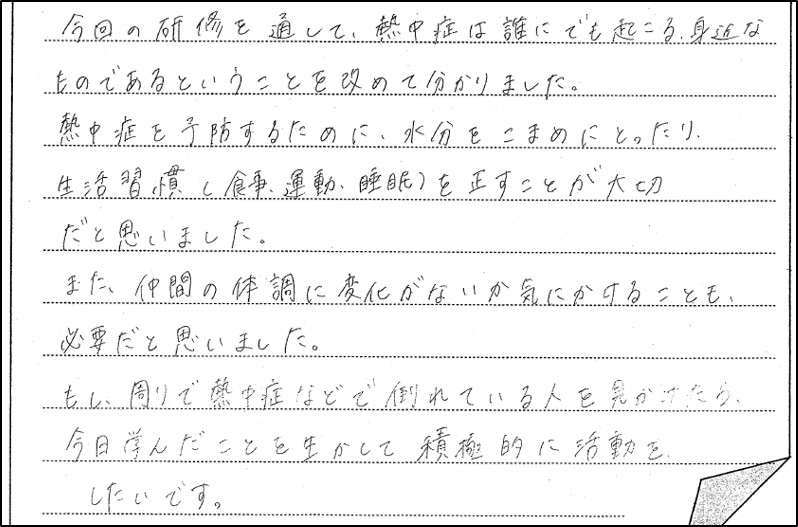 今回の研修を通して、熱中症は誰にでも起こる、身近な
ものであるということを改めて分かりました。
熱中症を予防するために、水分をこまめにとったり、
生活習慣(食事、運動、睡眠)を正すことが大切
だと思いました。
また、仲間の体調に変化がないか気にかけることも、
必要だと思いました。
もし、周りで熱中症などで倒れている人を見かけたら、
今日学んだことを生かして積極的に活動を
したいです。